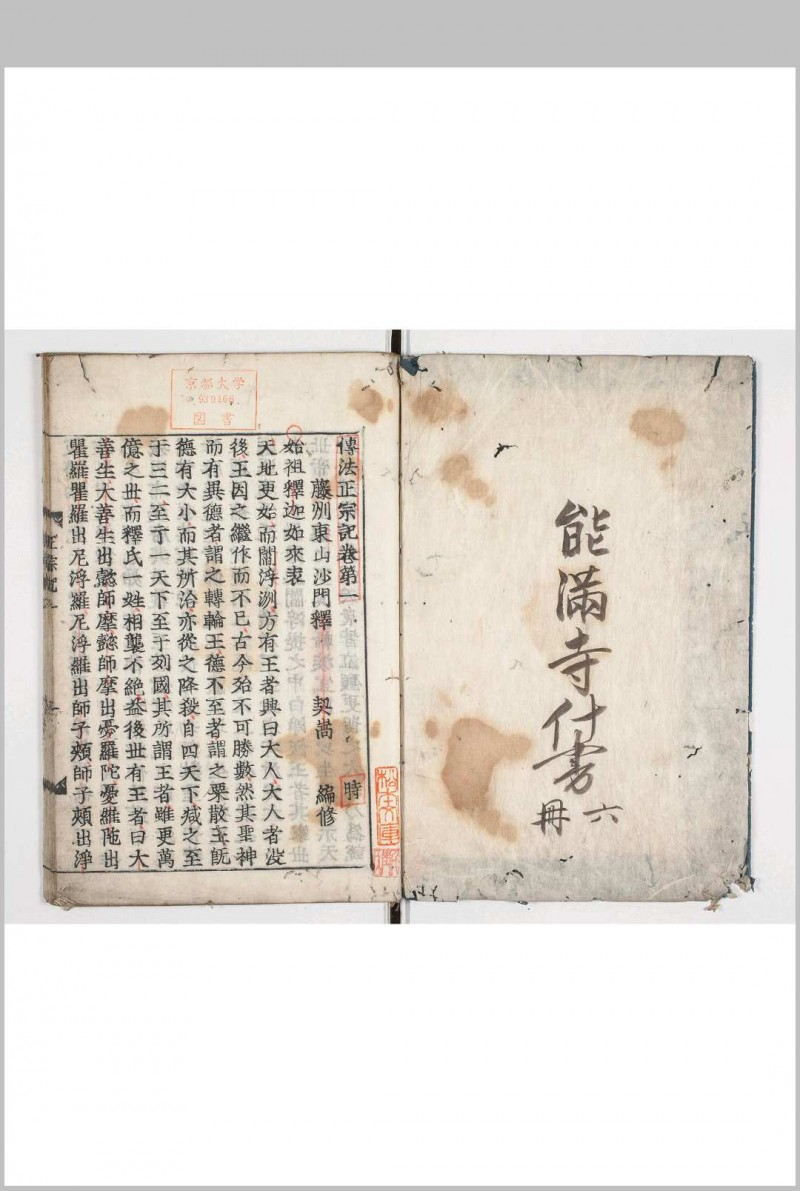 能滿寺什書
六冊
京都大学
図書
傳法正宗記卷第一
時
藤州東山沙門釋 契嵩 編修
始祖釋迦如來表
天地更始而閻浮洲方有王者興曰大人大人者沒
後王因之繼作而不已古今殆不可勝數然其聖神
而有異德者謂之轉輪王德不至者謂之粟散王既
德有大小而其所治亦從之降殺自四天下減之至
于三二至于一天下至于列國其所謂王者雖更萬
億之世而釋氏一姓相襲不絕益後世有王者曰大
善生大善生出懿師摩懿師摩出憂羅陀憂羅陁出
瞿羅瞿羅出尼浮羅尼浮羅出師子頰師子頰出淨
正宗記